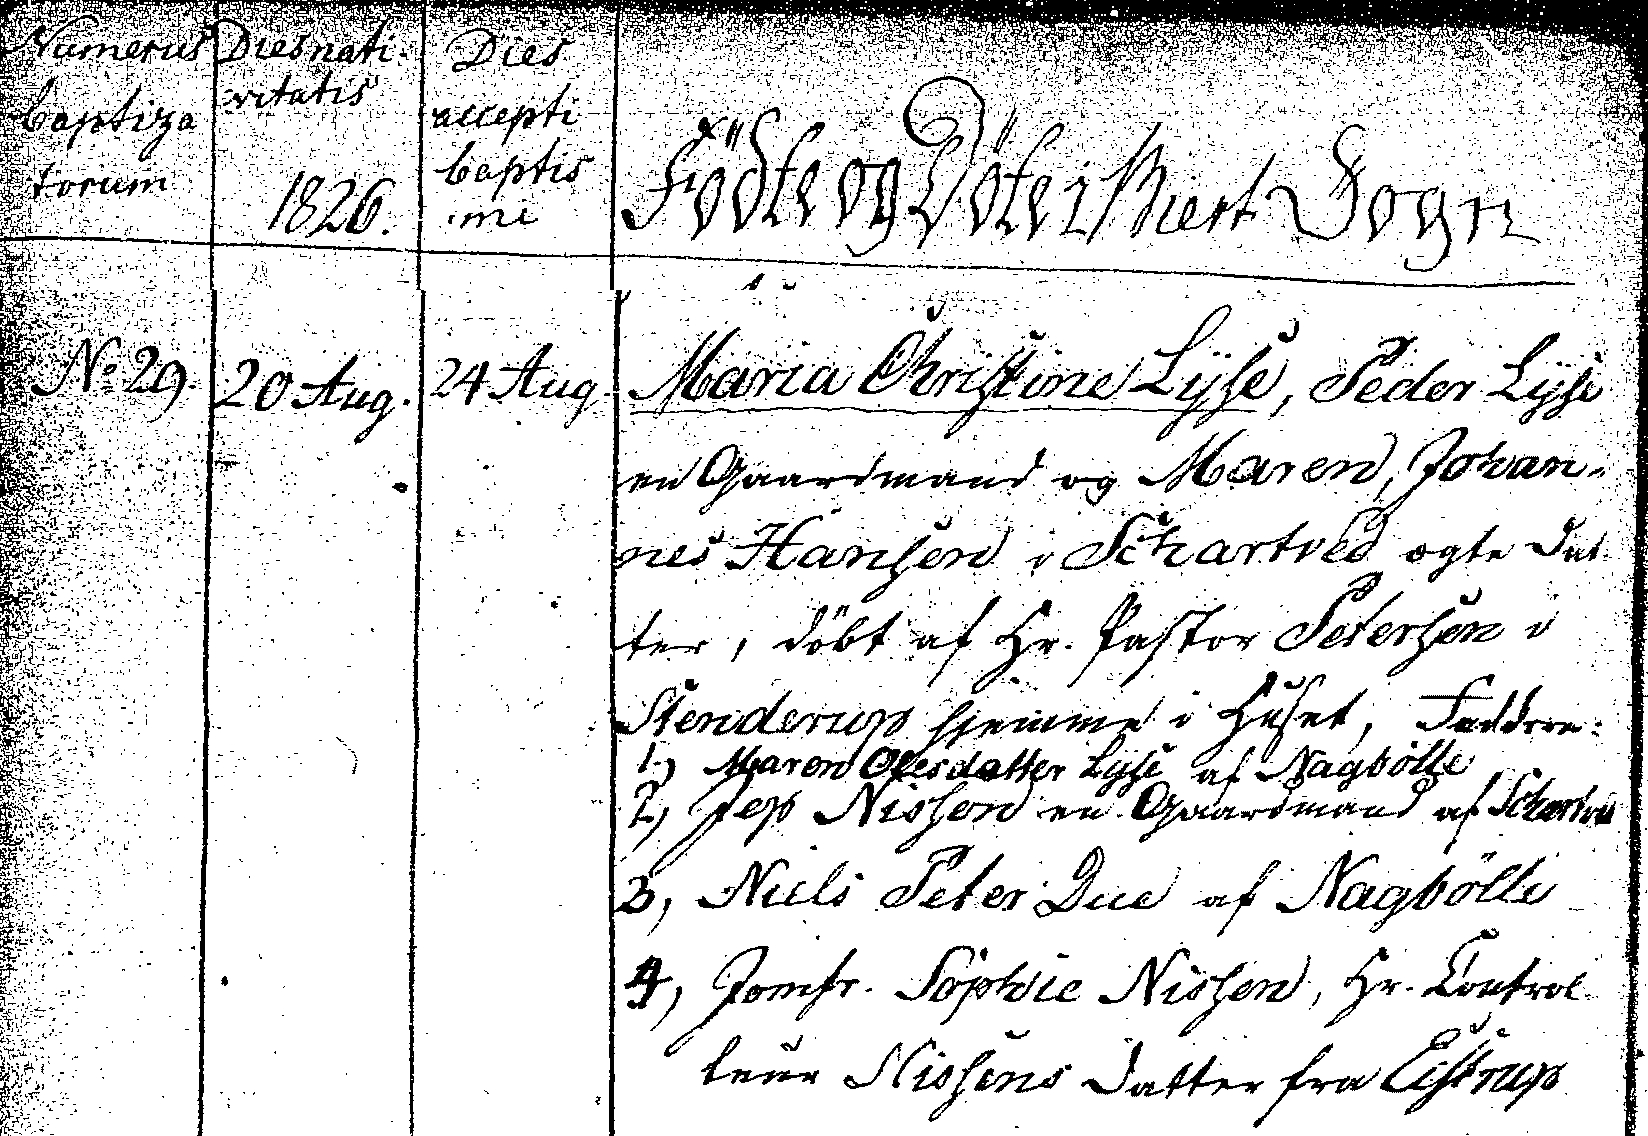 Numerus
baptiza
torum
Dies nati-
vitatis
1826.
Dies
accepti
baptis
-mi
Födte og Döte i Biert Sogn
No 29.
20 Aug.
24 Aug.
Maria Christine Lÿse, Peder Lÿse
en Gaardmand og Maren, Johan-
nes Hansen i Schartved ægte Dat-
ter, döbt af Hr. Pastor Petersen i
Stenderup hjemme i Huset, Faddere:
1) Maren Olesdatter Lyse af Nagbölle
2, Jep Nissen en Gaardmand af Schartved
3, Niels Peter Due af Nagbölle
4, Jomfr. Sophie Nissen, Hr. Control
leur Nissens Datter fra Eistrup